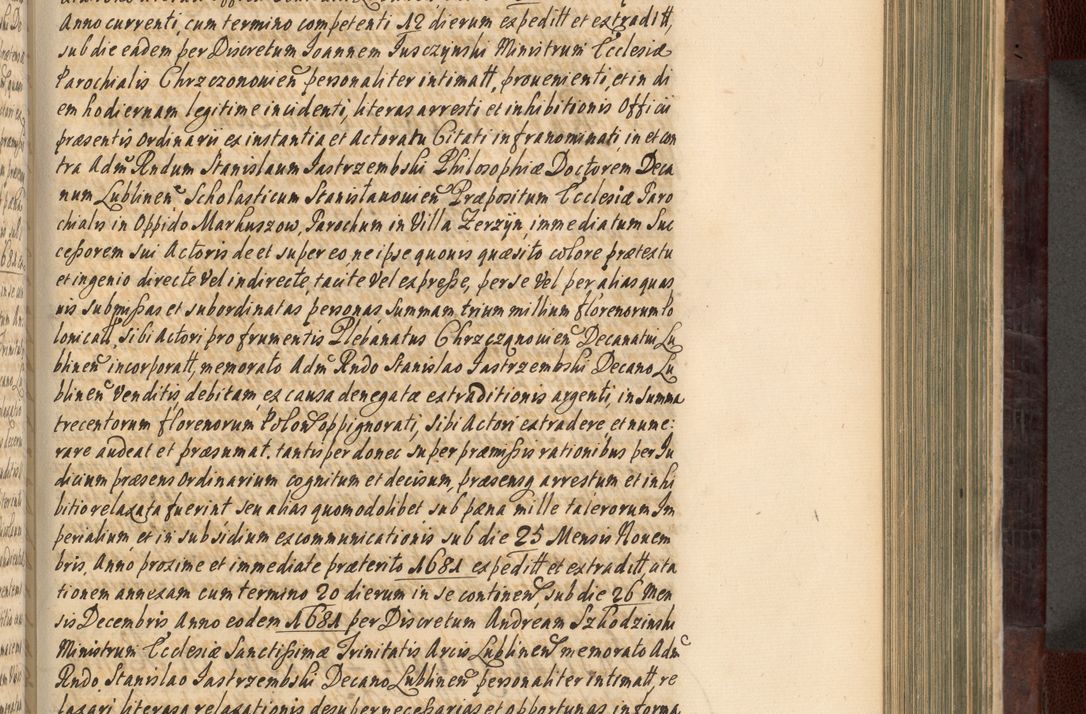 Anno currenti, cum termino competenti 12 dierum expeditt et extraditt,
sub die eadem per Discretum Joannem Juszczynski Ministrum Ecclesiæ
Parochialis Chrzczonovien personaliter intimatt, provenienti, et in di
em hodiernam legitime incidenti, literas arresti et inhibitionis Officii
præsentis Ordinarii ex instantia et Actoratu Citati infranominati in et con
tra Adm Rndum Stanislaum Jastrzembski Philosophiæ Doctorem Deca
num Lublinen Scholasticum Stanislaouien Præpositum Ecclesiæ Paro
chialis in Oppido Markuszow, Parochum in Villa Zerzÿn immediatum Suc
ceßorem sui Actoris de et super eo ne ipse quovis quæsito colore prætextu
et ingenio directe vel indirecte, tacite vel expreße, per se vel per alias quas
vis submißas et subordinatas personas summam trium millium florenorum Po
lonicall, sibi Actori pro frumentis Plebanatus Chrzczonowien Decanatus Lu
blinen incorporatt, memorato Adm Rndo Stanislao Jastrzembski Decano Lu
blinen venditis, debitam, ex causa denegatæ extraditionis argenti, in summa
trecentorum florenorum Polon oppignorati, sibi Actori extradere et nume:
rare audeat et præsumat. tantisper donec super præmißis rationibus per Ju
dicium præsens Ordinarium cognitum et decisum, præsensq arrestum et inhi
bitio relaxata fuerint seu alias quomodolibet sub pæna mille talerorum Im
perialium, et in subsidium excommunicationis sub die 25 Mensis Novem
bris, Anno proxime et immediate præterito 1681 expeditt et extraditt, cita
tionem annexam cum termino 20 dierum in se continen, sub die 26 Men
sis Decembris Anno eodem 1681 per Discretum Andream Szkodzinski
Ministrum Ecclesiæ Sanctißimæ Trinitatis Arcis Lublinen memorato Adm
Rndo Stanislao Jastrzembski Decano Lublinen personaliter intimatt, re
laxari literasq relaxationis desuper neceßarias et opportunas in forma